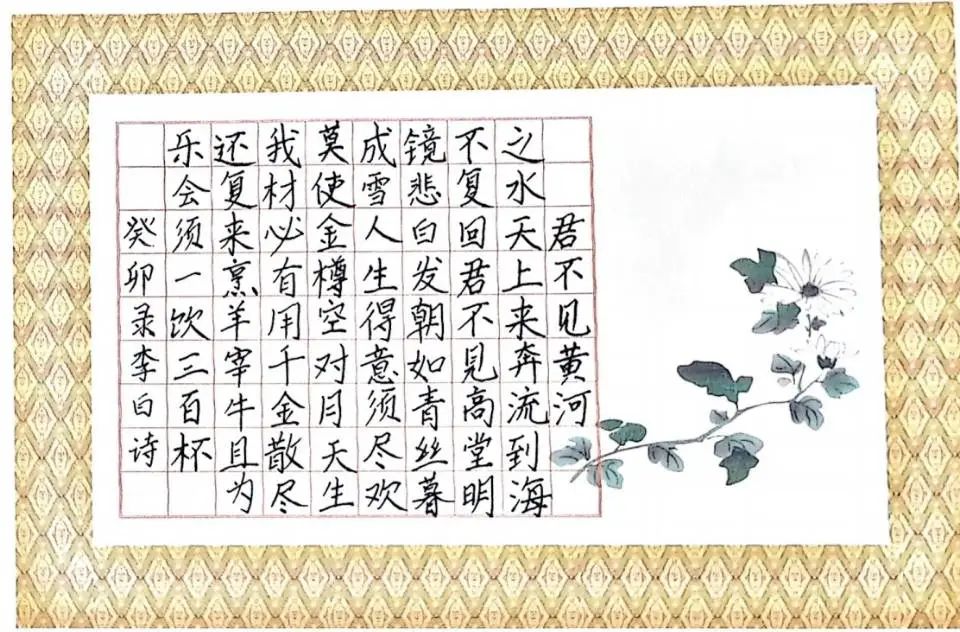 君不见黄河
之水天上来奔流到海
不复回君不见高堂明
镜悲白发朝如青丝暮
成雪人生得意须尽欢
莫使金樽空对月天生
我材必有用千金散尽
还复来烹羊宰牛且为
乐会须一饮三百杯
癸卯录李白诗